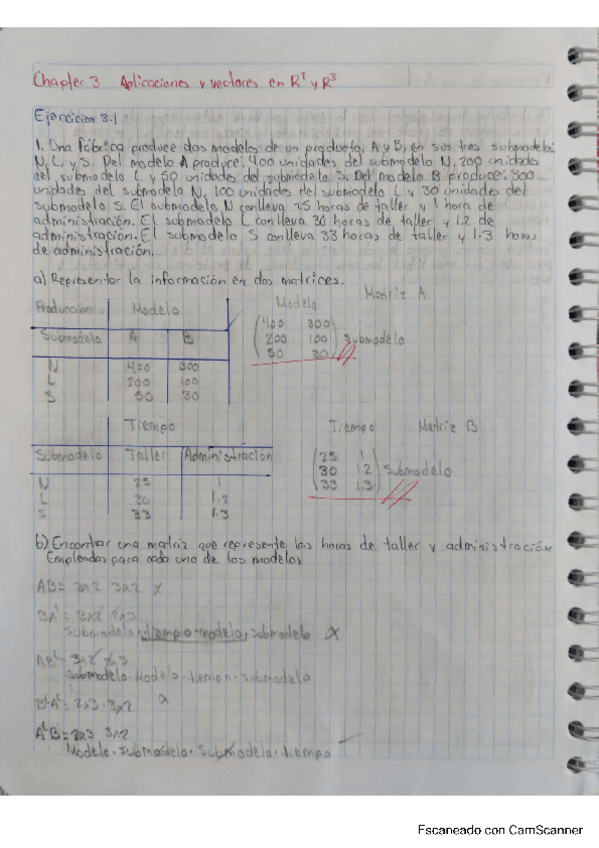 Chapter 3 Aplicaciones y vectores en R² y R³
Ejercicios 3.1
1. Una fábrica produce dos modelos de un producto, A y B, en sus tres submodelos
N, L y S. Del modelo A produce: 400 unidades del submodelo N, 200 unidades
del submodelo L y 50 unidades del submodelo S. Del modelo B produce: 300
unidades del submodelo N, 100 unidades del submodelo L y 30 unidades del
submodelo S. El submodelo N conlleva 25 horas de taller y 1 hora de
administración. El submodelo L conlleva 30 horas de taller y 1.2 de
administración. El submodelo S conlleva 33 horas de taller y 1.3 horas
de administración.
a) Representar la información en dos matrices.
Producción Modelo
Submodelo A B
N 400 300
L 200 100
S 50 30
Modelo Matriz A
400 300
200 100 Submodelo
50 30
Tiempo
Submodelo Taller Administración
N 25 1
L 30 1.2
S 33 1.3
Tiempo Matriz B
25 1
30 1.2 Submodelo
33 1.3
b) Encontrar una matriz que represente las horas de taller y administración
Empleadas para cada uno de los modelos
AB= 3x2 3x2 x
BAᵗ= 3x2 2x3
Submodelo · tiempo · modelo, submodelo x
ABᵗ= 3x2 2x3
Submodelo · Modelo · tiempo · submodelo
BᵗAᵗ= 2x3 · 3x2 x
AᵗB= 2x3 3x2
Modelo · submodelo · Submodelo · tiempo
Escaneado con CamScanner